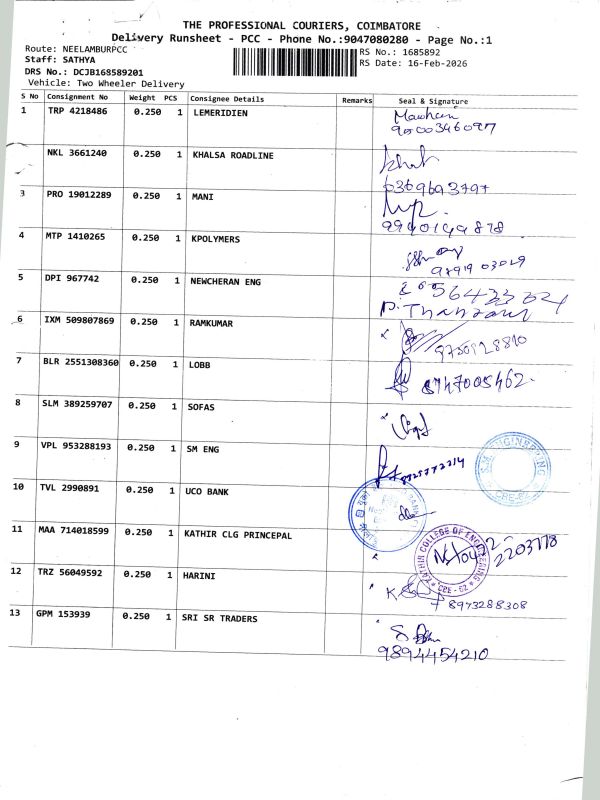 THE PROFESSIONAL COURIERS, COIMBATORE
Delivery Runsheet - PCC - Phone No.:9047080280 - Page No.:1
Route: NEELAMBURPCC
RS No.: 1685892
Staff: SATHYA
RS Date: 16-Feb-2026
DRS No.: DCJB168589201
Vehicle: Two Wheeler Delivery
S No Consignment No Weight PCS Consignee Details Remarks Seal & Signature
1 TRP 4218486 0.250 1 LEMERIDIEN
9000346097
NKL 3661240 0.250 1 KHALSA ROADLINE
6369693797
3 PRO 19012289 0.250 1 MANI
9940149878
4 MTP 1410265 0.250 1 KPOLYMERS
5 DPI 967742 0.250 1 NEWCHERAN ENG
6 IXM 509807869 0.250 1 RAMKUMAR
7 BLR 2551308360 0.250 1 LOBB
8747005462.
8 SLM 389259707 0.250 1 SOFAS
9 VPL 953288193 0.250 1 SM ENG
S.M. ENGINEERING
CBE-62
10 TVL 2990891 0.250 1 UCO BANK
11 MAA 714018599 0.250 1 KATHIR CLG PRINCEPAL
KATHIR COLLEGE OF ENGINEERING
CBE - 62
2203778
12 TRZ 56049592 0.250 1 HARINI
8973288308
13 GPM 153939 0.250 1 SRI SR TRADERS
9894454210